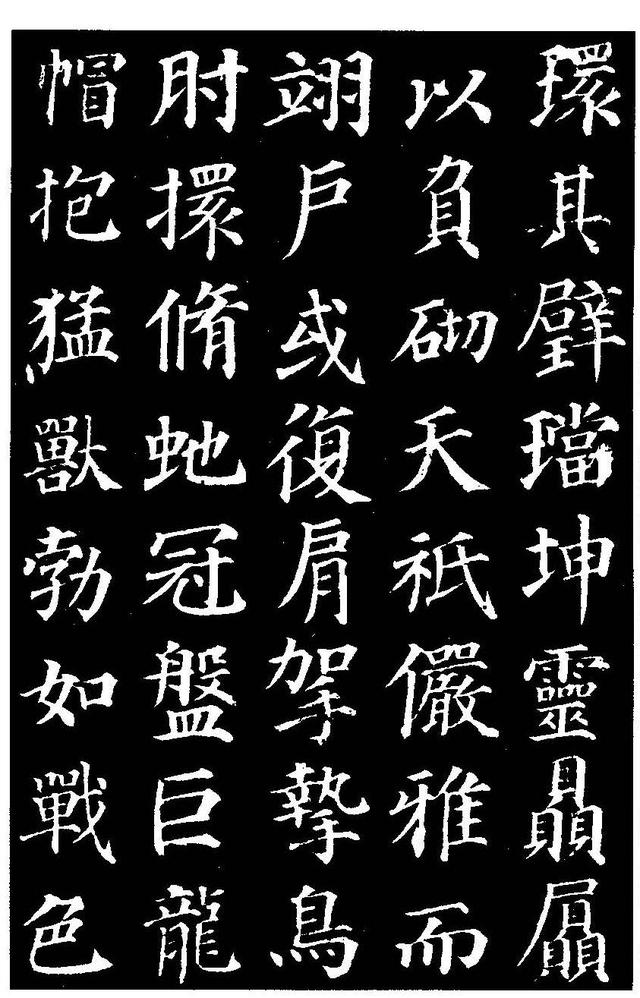 環其璧璫坤靈贔屭
以負砌天祇儼雅而
翊戶或復肩挐摯鳥
肘擐脩虵冠盤巨龍
帽抱猛獸勃如戰色